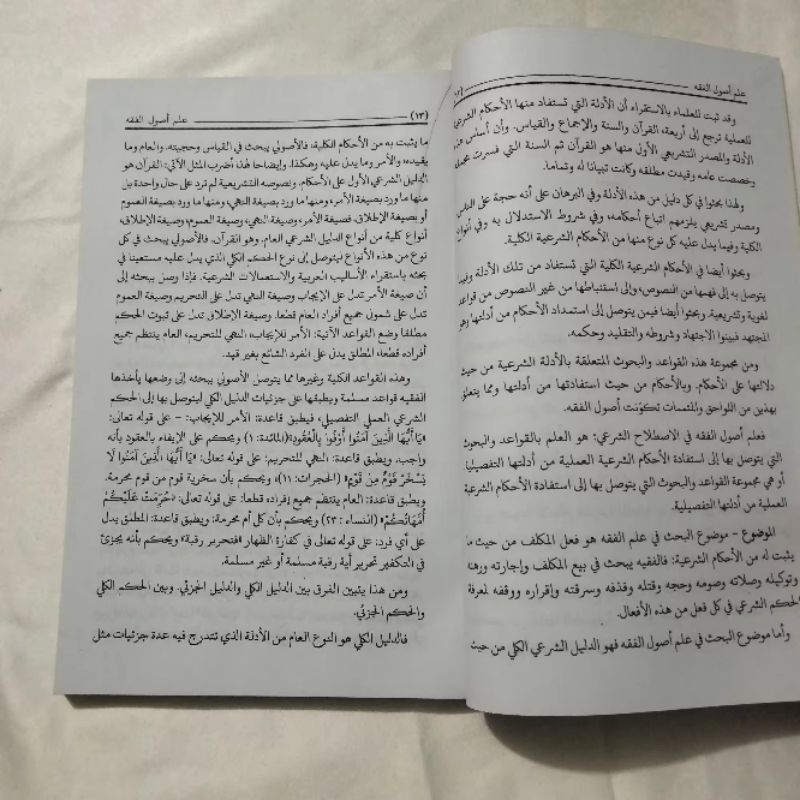 علم أصول الفقه
وقد ثبت للعلماء بالاستقراء أن الأدلة التي تستفاد منها الأحكام الشرعية
للعملية ترجع إلى أربعة، القرآن والسنة والإجماع والقياس. وأن أساس هذه
الأدلة والمصدر التشريعي الأول منها هو القرآن ثم السنة التي فسرت مجمله
وخصصت عامه وقيدت مطلقه وكانت تبيانا له وتماما.
ولهذا بحثوا في كل دليل من هذه الأدلة وفي البرهان على أنه حجة على الناس
ومصدر تشريعي يلزمهم اتباع أحكامه، وفي شروط الاستدلال به وفي أنواعه
الكلية وفيما يدل عليه كل نوع منها من الأحكام الشرعية الكلية.
وبحثوا أيضا في الأحكام الشرعية الكلية التي تستفاد من تلك الأدلة وفيما
يتوصل به إلى فهمها من النصوص، وإلى استنباطها من غير النصوص من قواعد
لغوية وتشريعية. وبحثوا أيضا فيمن يتوصل إلى استمداد الأحكام من أدلتها وهو
المجتهد فبينوا الاجتهاد وشروطه والتقليد وحكمه.
ومن مجموعة هذه القواعد والبحوث المتعلقة بالأدلة الشرعية من حيث
دلالتها على الأحكام. وبالأحكام من حيث استفادتها من أدلتها ومما يتعلق
بهذين من اللواحق والمتممات تكوّنت أصول الفقه.
فعلم أصول الفقه في الاصطلاح الشرعي: هو العلم بالقواعد والبحوث
التي يتوصل بها إلى استفادة الأحكام الشرعية العملية من أدلتها التفصيلية
أو هي مجموعة القواعد والبحوث التي يتوصل بها إلى استفادة الأحكام الشرعية
العملية من أدلتها التفصيلية.
الموضوع – موضوع البحث في علم الفقه هو فعل المكلف من حيث ما
يثبت له من الأحكام الشرعية: فالفقيه يبحث في بيع المكلف وإجارته ورهنه
وتوكيله وصلاته وصومه وحجه وقتله وقذفه وسرقته وإقراره ووقفه لمعرفة
الحكم الشرعي في كل فعل من هذه الأفعال.
وأما موضوع البحث في علم أصول الفقه فهو الدليل الشرعي الكلي من حيث
علم أصول الفقه (١٣)
ما يثبت به من الأحكام الكلية، فالأصولي يبحث في القياس وحجيته. والعام وما
يقيده، والأمر وما يدل عليه وهكذا. وإيضاحا لهذا أضرب المثل الآتي: القرآن هو
الدليل الشرعي الأول على الأحكام. ونصوصه التشريعية لم ترد على حال واحدة بل
منها ما ورد بصيغة الأمر، ومنها ما ورد بصيغة النهي، ومنها ما ورد بصيغة العموم
أو بصيغة الإطلاق. فصيغة الأمر، وصيغة النهي، وصيغة العموم، وصيغة الإطلاق،
أنواع كلية من أنواع الدليل الشرعي العام. وهو القرآن. فالأصولي يبحث في كل
نوع من هذه الأنواع ليتوصل إلى نوع الحكم الكلي الذي يدل عليه مستعينا في
بحثه باستقراء الأساليب العربية والاستعمالات الشرعية. فإذا وصل ببحثه إلى
أن صيغة الأمر تدل على الإيجاب وصيغة النهي تدل على التحريم وصيغة العموم
تدل على شمول جميع أفراد العام قطعا. وصيغة الإطلاق تدل على ثبوت الحكم
مطلقا وضع القواعد الآتية: الأمر للإيجاب، النهي للتحريم، العام ينتظم جميع
أفراده قطعا، المطلق يدل على الفرد الشائع بغير قيد.
وهذه القواعد الكلية وغيرها مما يتوصل الأصولي ببحثه إلى وضعها يأخذها
الفقيه قواعد مسلمة ويطبقها على جزئيات الدليل الكلي ليتوصل بها إلى الحكم
الشرعي العملي التفصيلي، فيطبق قاعدة: الأمر للإيجاب: - على قوله تعالى:
«يَا أَيُّهَا الَّذِينَ آمَنُوا أَوْفُوا بِالْعُقُودِ» (المائدة: ١) ويحكم على الإيفاء بالعقود بأنه
واجب. ويطبق قاعدة: النهي للتحريم: على قوله تعالى: «يَا أَيُّهَا الَّذِينَ آمَنُوا لَا
يَسْخَرْ قَوْمٌ مِنْ قَوْمٍ» (الحجرات: ١١)» ويحكم بأن سخرية قوم من قوم محرمة.
ويطبق قاعدة: العام ينتظم جميع إفراده قطعا: على قوله تعالى: «حُرِّمَتْ عَلَيْكُمْ
أُمَّهَاتُكُمْ» (النساء: ٢٣) ويحكم بأن كل أم محرمة. ويطبق قاعدة: المطلق يدل
على أي فرد: على قوله تعالى في كفارة الظهار «فتحرير رقبة» ويحكم بأنه يجزئ
في التكفير تحرير أية رقبة مسلمة أو غير مسلمة.
ومن هذا يتبين الفرق بين الدليل الكلي والدليل الجزئي. وبين الحكم الكلي
والحكم الجزئي.
فالدليل الكلي هو النوع العام من الأدلة الذي تندرج فيه عدة جزئيات مثل